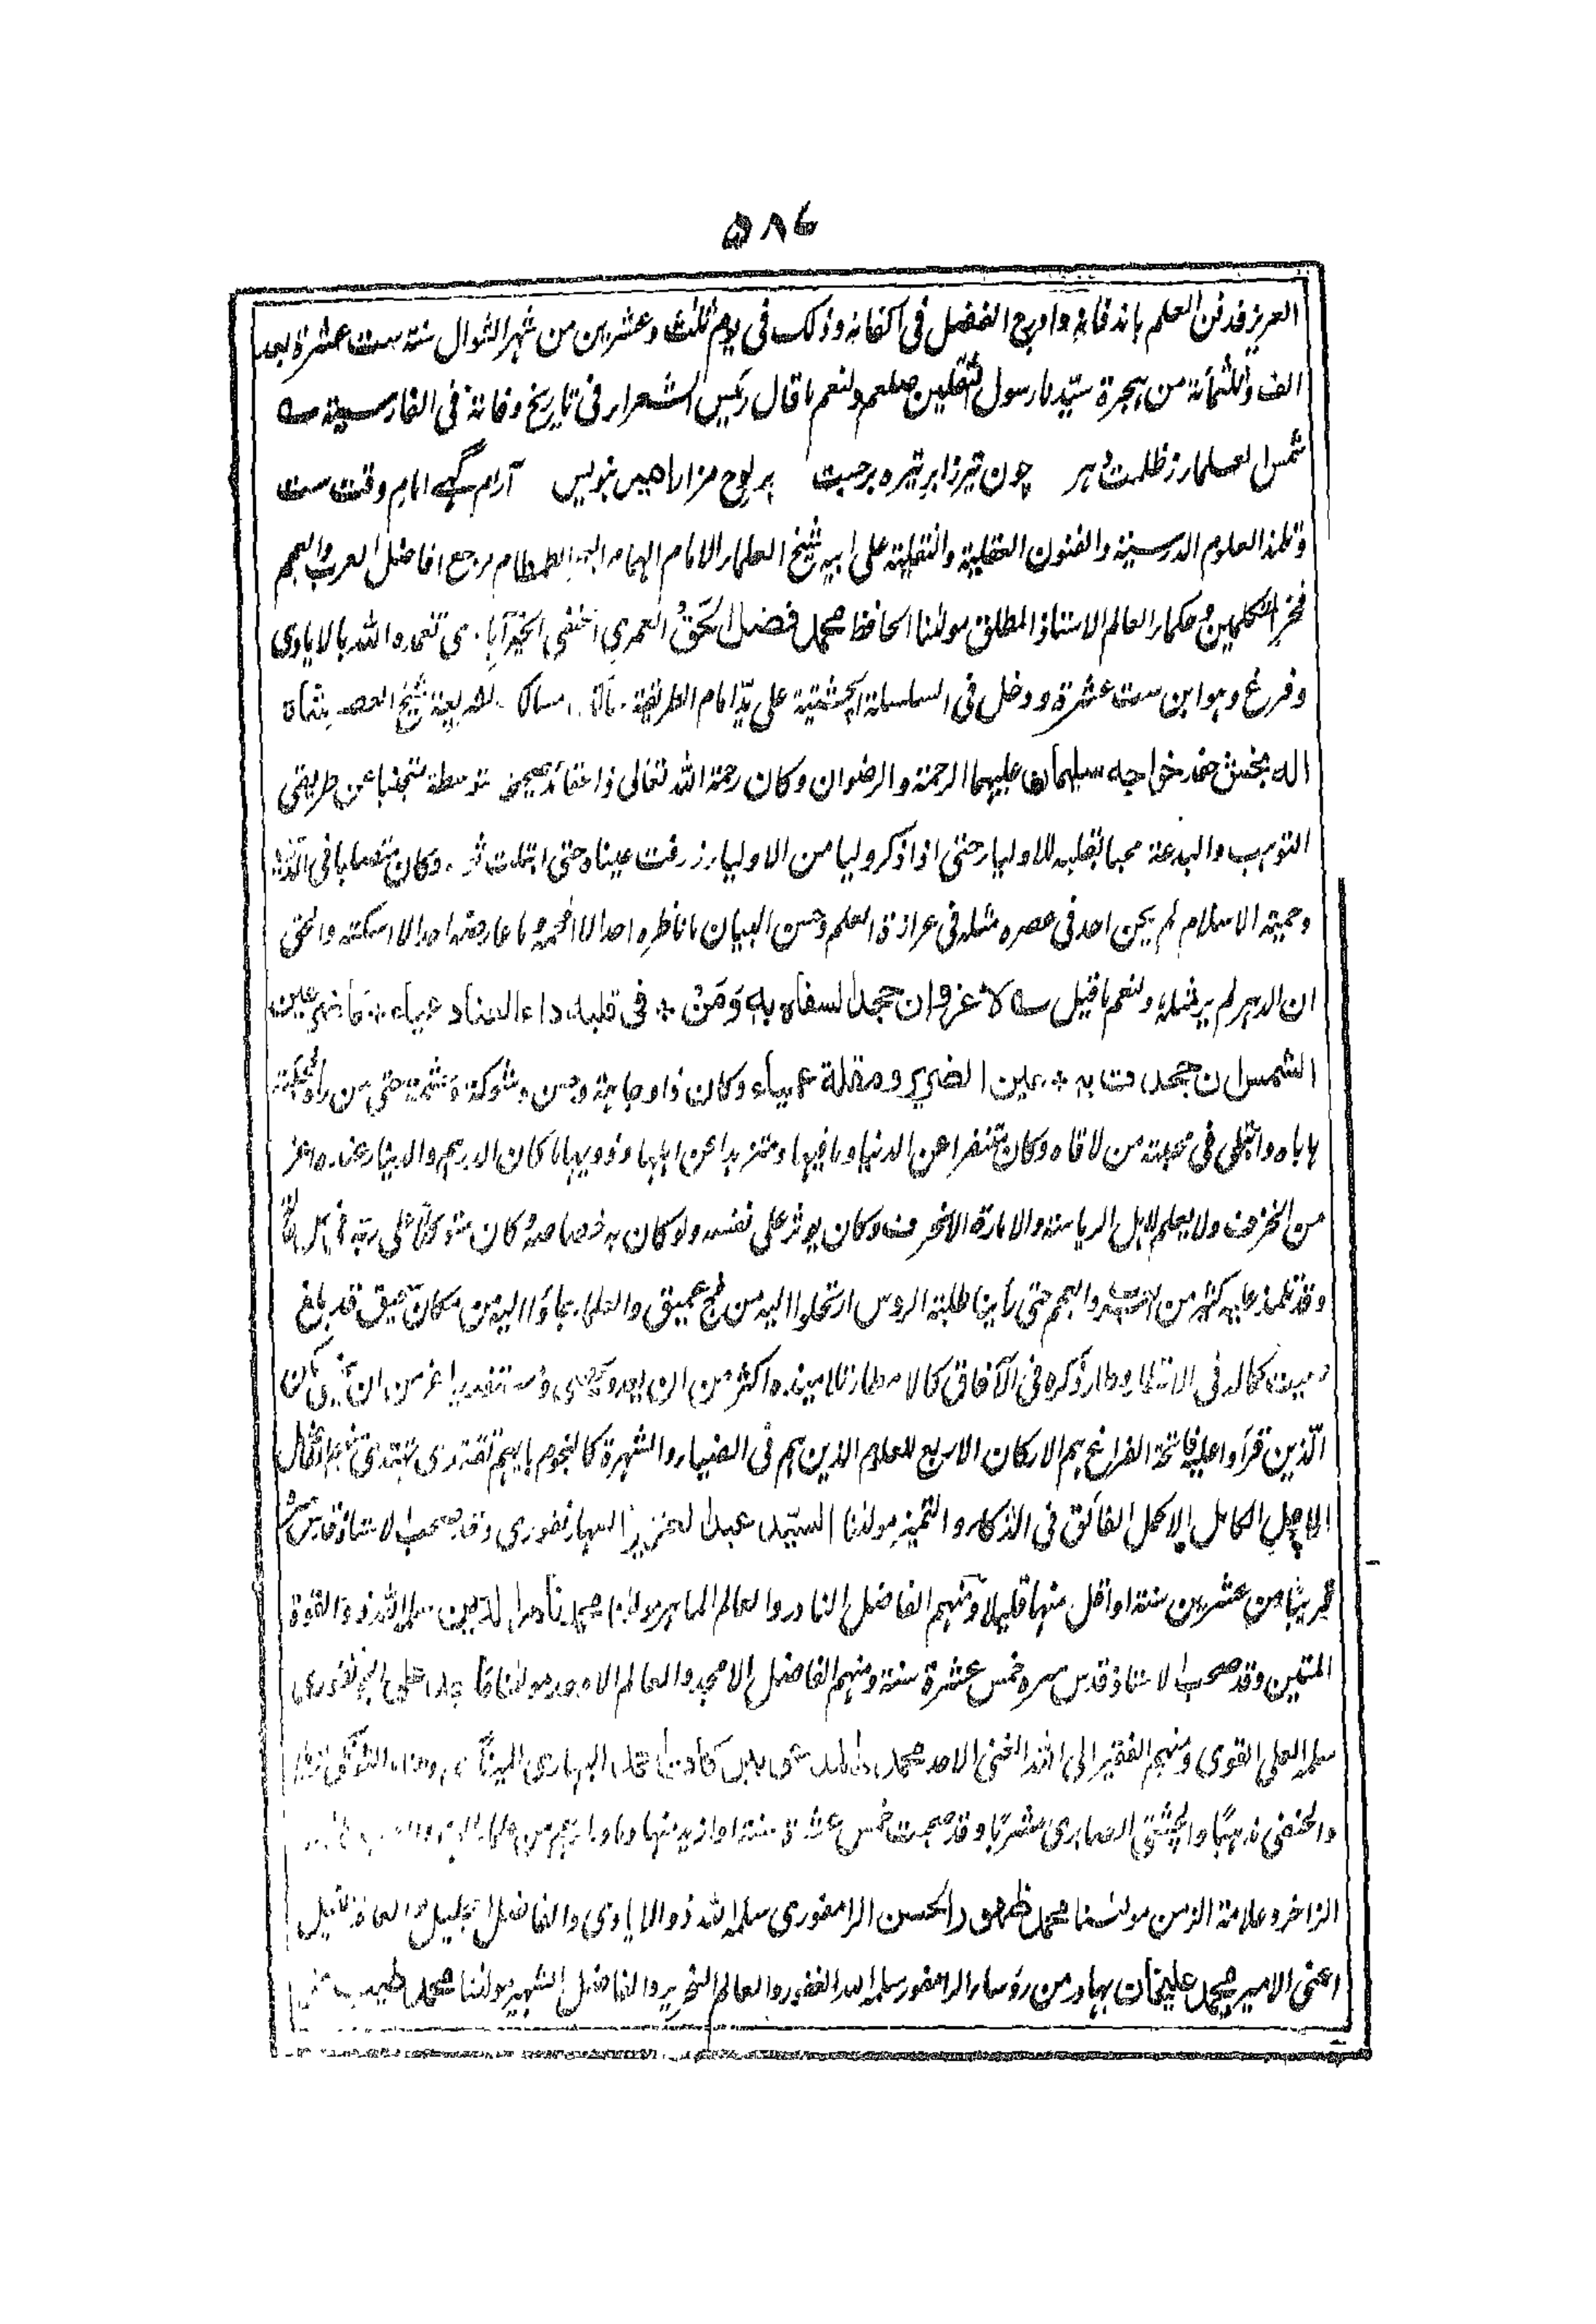 ۵۸۶
العزيز فدفن العلم باندفانه وادرج الفضل فى اكفانه وذلك فى يوم ثلث وعشرين من شهر الشوال سنة ست عشرة بعد
الف وثلثمائة من هجرة سيدنا رسول الثقلين صلعم ولنعم ما قال رئيس الشعراء فى تاريخ وفاته فى الفارسية ؎
شمس العلماء ز ظلمت دهر چون تير ز ابر تيره برجست بر لوح مزار ما همين بنويس آرام گہے امام وقت ست
وتلمذ العلوم الدرسية والفنون العقلية والنقلية على ابيه شيخ العلماء الامام الهمام الطمطام مرجع افاضل العرب والعجم
فخر المتكلمين وحكماء العالم الاستاذ المطلق مولٰنا الحافظ محمد فضل الحق العمرى الحنفى الخيرآبادى تغمده الله بالايادى
وفرغ وهو ابن ست عشرة ودخل فى السلسلة الچشتية على يد امام الطريقة الشريعة شيخ العصر شاه
اله بخش حفيد خواجه سليمان عليهما الرحمة والرضوان وكان رحمة الله تعالى ذا عقائد صحيحة متوسطة متجنبا عن طريقى
التوهب والبدعة محبا بقلبه للاولياء حتى اذا ذكر وليا من الاولياء زرفت عيناه حتى ابتلت وكان متصلبا فى
وحمية الاسلام لم يكن احد فى عصره مثله فى غزارة العلم وحسن البيان ما ناظره احد الا افحمه وما عارضه احد الا اسكته والحق
ان الدهر لم ير مثله ولنعم ما قيل ؎ لا غرو ان جحد السفاه به ومن * فى قلبه داء العناد عياء * ما ضر عين
الشمس ان جحدت به * عين الضرير ومقلة عمياء وكان ذا وجاهة وحسن وشوكة وحشمة حتى من راه
هابه وابتلى فى محبته من لاقاه وكان متنفرا عن الدنيا وما فيها ومتزهدا عن اهلها وذويها ما كان الدرهم والدينار عنده اعز
من الخزف ولا يعلم لاهل الرياسة والامارة الا الخرف وكان يوثر على نفسه ولو كان به خصاصة وكان متوكلا على ربه
وقد تلمذ عليه كثير من والعجم حتى راينا طلبة الروس ارتحلوا اليه من فج عميق والعلماء جاؤا اليه من مكان سحيق قد بلغ
صيت كماله فى وطار ذكره فى الآفاق كالامطار تلاميذه اكثر من ان يعد ويحصى
الذين قرأوا عليه فاتحة الفراغ هم الاركان الاربع للعلوم الذين هم فى الضياء والشهرة كالنجوم بايهم تقتدى تهتدى
الاجل الكامل الاكمل الفائق فى الذكاء والتميز مولٰنا السيد عبد العزيز السهارنفورى وقد صحب الاستاذ قدس سره
قريبا من عشرين سنة او اقل منها قليلا ومنهم الفاضل النادر والعالم الماهر مولٰنا محمد الدين سلمه الله ذو القوة
المتين وقد صحب الاستاذ قدس سره خمس عشرة سنة ومنهم الفاضل الامجد والعالم الاوحد مولٰنا على
سلمه العلى القوى ومنهم الفقير الى الله الغنى الاحد محمد البهارى
والحنفى مذهبا والچشتى الصابرى مشربا وقد صحبت خمس عشرة سنة او ازيد منها
الزاخر وعلامة الزمن مولٰنا محمد ظهور الحسن الرامفورى سلمه الله ذو الايادى والفاضل الجليل
اعنى الامير محمد عليخان بهادر من رؤساء الرامفور سلمه الله الغفور والعالم النحرير والفاضل الشهير مولٰنا محمد طيب